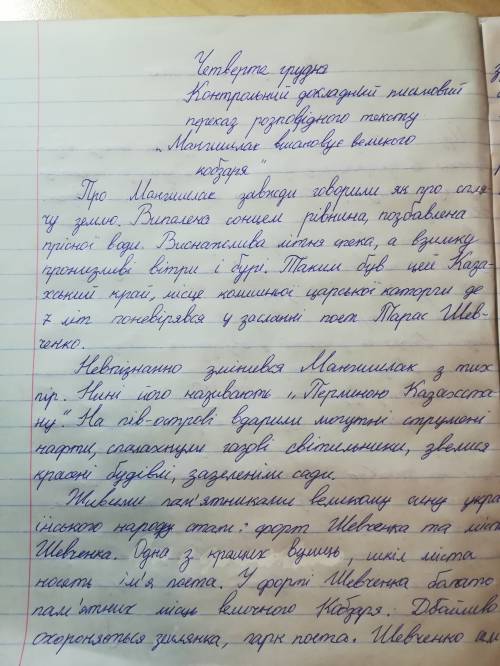 Четверте грудня
Контрольний докладний письмовий
переказ розповідного тексту
„Мангишлак вшановує великого
кобзаря"
Про Мангишлак завжди говорили як про спля
чу землю. Випалена сонцем рівнина, позбавлена
прісної води. Виснажлива літня спека, а взимку
пронизливі вітри і бурі. Таким був цей Каза-
хський край, місце колишньої царської каторги де
7 літ поневірявся у засланні поет Тарас Шев-
ченко.
Невпізнанно змінився Мангишлак з тих
пір. Нині його називають „Перлиною Казахста
ну". На пів-острові вдарили могутні струмені
нафти, спалахнули газові світильники, звелися
красені будівлі, зазеленіли сади.
Живими пам'ятниками великому сину укра
їнського народу стали: форт Шевченка та міст
Шевченка. Одна з кращих вулиць, шкіл міста
носять ім'я поета. У форті Шевченка багато
пам'ятних місць великого Кобзаря. Дбайливо
охороняється землянка, парк поета. Шевченко